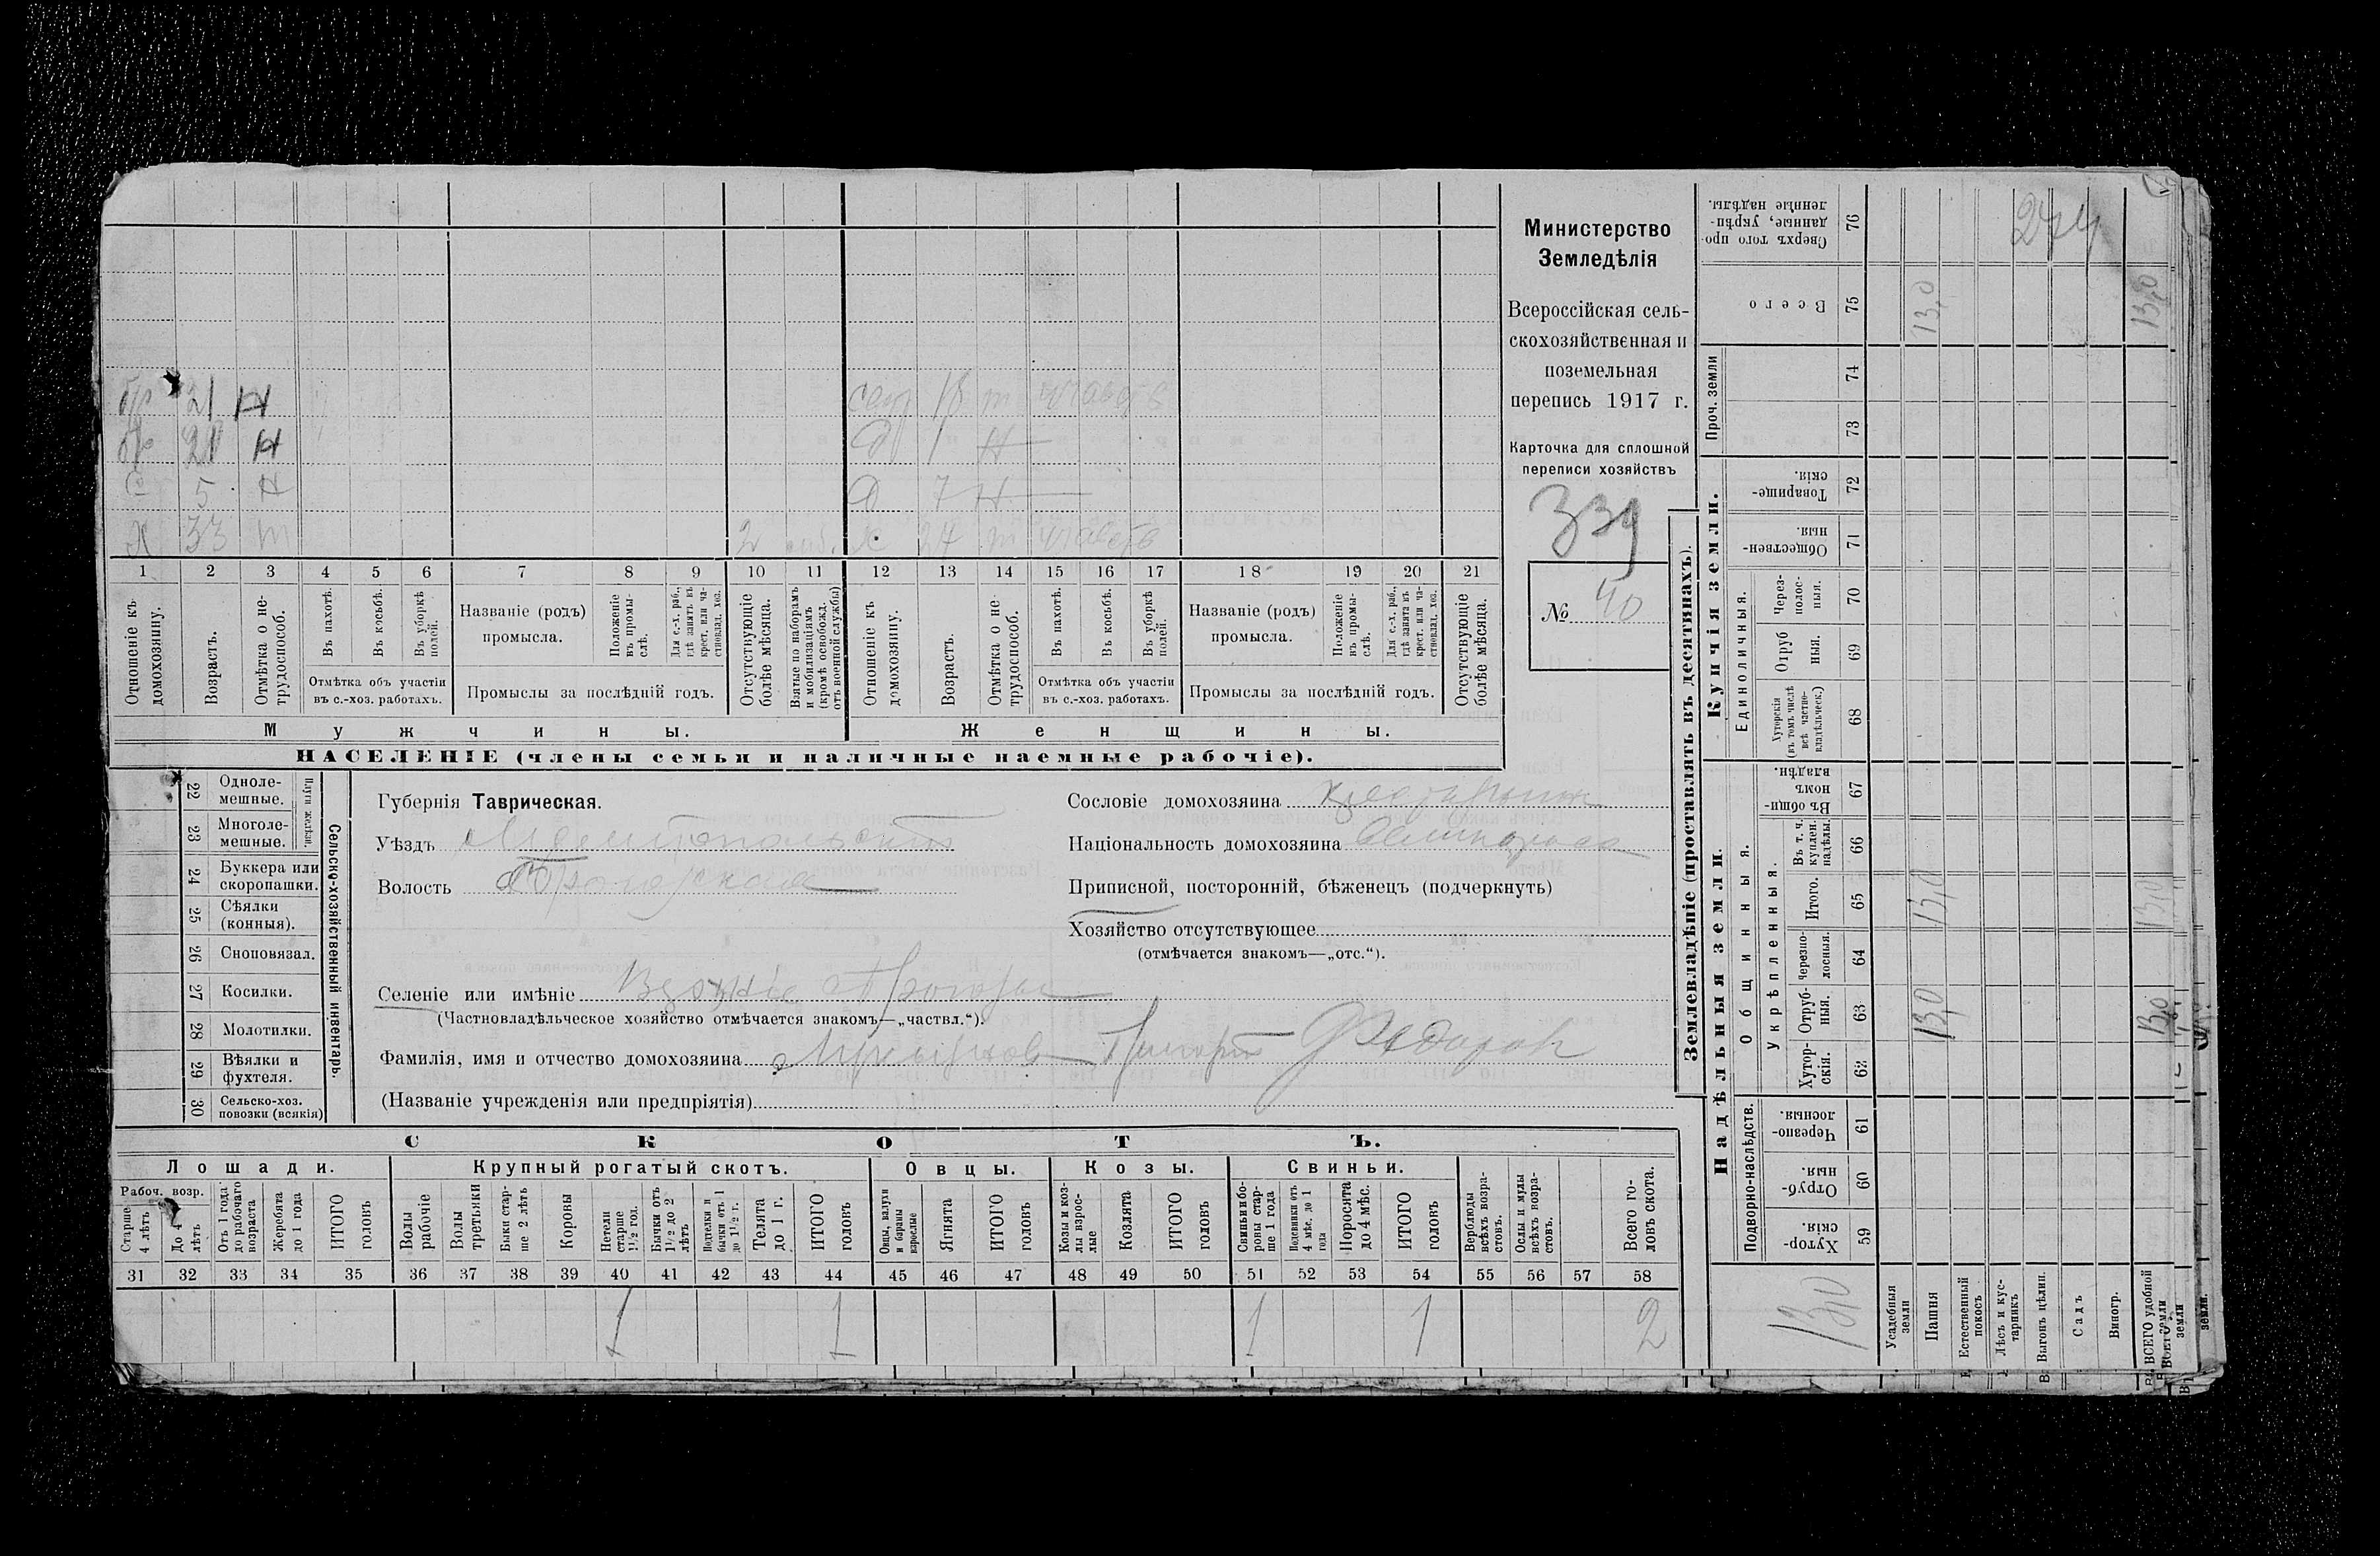 Министерство
Земледѣлія
Всероссійская сель-
скохозяйственная и
поземельная
перепись 1917 г.
Карточка для сплошной
переписи хозяйствъ
339
№ 40
бр 21 Н
бр Н
с 5 Н
х 33 т 2
18 т
д 1 Н
д 7 Н
х т
1 2 3 4 5 6 7 8 9 10 11 12 13 14 15 16 17 18 19 20 21
Отношеніе къ домохозяину.
Возрастъ.
Отмѣтка о не-трудоспособ.
Въ пахотѣ.
Въ косьбѣ.
Въ уборкѣ полей.
Отмѣтка объ участіи
въ с.-хоз. работахъ.
Названіе (родъ)
промысла.
Положеніе въ промы-слѣ.
Для с.-х. раб., гдѣ занятъ въ крест. или ча-стновлад. хоз.
Промыслы за послѣдній годъ.
Отсутствующіе болѣе мѣсяца.
Взятые по наборамъ и мобилизаціямъ (кромѣ освобожд. отъ военной службы)
Отношеніе къ домохозяину.
Возрастъ.
Отмѣтка о не-трудоспособ.
Въ пахотѣ.
Въ косьбѣ.
Въ уборкѣ полей.
Отмѣтка объ участіи
въ с.-хоз. работахъ.
Названіе (родъ)
промысла.
Положеніе въ промы-слѣ.
Для с.-х. раб., гдѣ занята въ крест. или ча-стновлад. хоз.
Промыслы за послѣдній годъ.
Отсутствующіе болѣе мѣсяца.
Мужчины. Женщины.
НАСЕЛЕНІЕ (члены семьи и наличные наемные рабочіе).
22 Одноле-мешные.
23 Многоле-мешные.
Плуги желѣзн.
24 Буккера или скоропашки.
25 Сѣялки (конныя).
26 Сноповязал.
27 Косилки.
28 Молотилки.
29 Вѣялки и фухтеля.
30 Сельско-хоз. повозки (всякія)
Сельско-хозяйственный инвентарь.
Губернія Таврическая.
Уѣздъ Мелитопольскій
Волость
Селеніе или имѣніе
(Частновладѣльческое хозяйство отмѣчается знакомъ—„частвл.“).
Фамилія, имя и отчество домохозяина Григорій Федоров
(Названіе учрежденія или предпріятія)
Сословіе домохозяина
Національность домохозяина
Приписной, посторонній, бѣженецъ (подчеркнуть)
Хозяйство отсутствующее
(отмѣчается знакомъ—„отс.“).
СКОТЪ.
Лошади. Крупный рогатый скотъ. Овцы. Козы. Свиньи.
Рабоч. возр.
Старше 4 лѣтъ
До 4 лѣтъ
Отъ 1 года до рабочаго возраста
Жеребята до 1 года
ИТОГО головъ
Волы рабочіе
Волы третьяки
Быки стар-ше 2 лѣтъ
Коровы
Нетели старше 1½ год.
Бычки отъ 1½ до 2 лѣтъ
Подтелки и бычки отъ 1 до 1½ г.
Телята до 1 г.
ИТОГО головъ
Овцы, валухи и бараны взрослые
Ягнята
ИТОГО головъ
Козы и коз-лы взрос-лые
Козлята
ИТОГО головъ
Свиньи и бо-ровы стар-ше 1 года
Подсвинки отъ 4 мѣс. до 1 года
Поросята до 4 мѣс.
ИТОГО головъ
Верблюды всѣхъ возра-стовъ.
Ослы и мулы всѣхъ возра-стовъ.
Всего го-ловъ скота.
31 32 33 34 35 36 37 38 39 40 41 42 43 44 45 46 47 48 49 50 51 52 53 54 55 56 57 58
1 1 1 1 2
Землевладѣніе (проставлять въ десятинахъ).
Надѣльныя земли.
Купчія земли.
Проч. земли
Подворно-наслѣдств.
Общинныя.
Укрѣпленныя.
Единоличныя.
Сверхъ того про-данные, укрѣп-ленные надѣлы. 76
Всего 75
74
73
Товарище-скія. 72
Обществен-ныя. 71
Через-полос-ныя. 70
Отруб ныя. 69
Хуторскія (въ томъ числѣ всѣ частно-владѣльческ.) 68
Въ общин-номъ владѣн. 67
Въ т. ч. куплен. надѣлы. 66
Итого. 65
Черезпо-лосныя. 64
Отруб-ныя. 63
Хутор-скія. 62
Черезпо-лосныя. 61
Отруб-ныя. 60
Хутор-скія. 59
Усадебныя земли
Пашня
Естественный покосъ
Лѣсъ и кус-тарникъ
Выгонъ цѣлин.
Садъ
Виногр.
ВСЕГО удобной земли
13,0
13,0
13,0
13,0
13,0
13,0
13,0